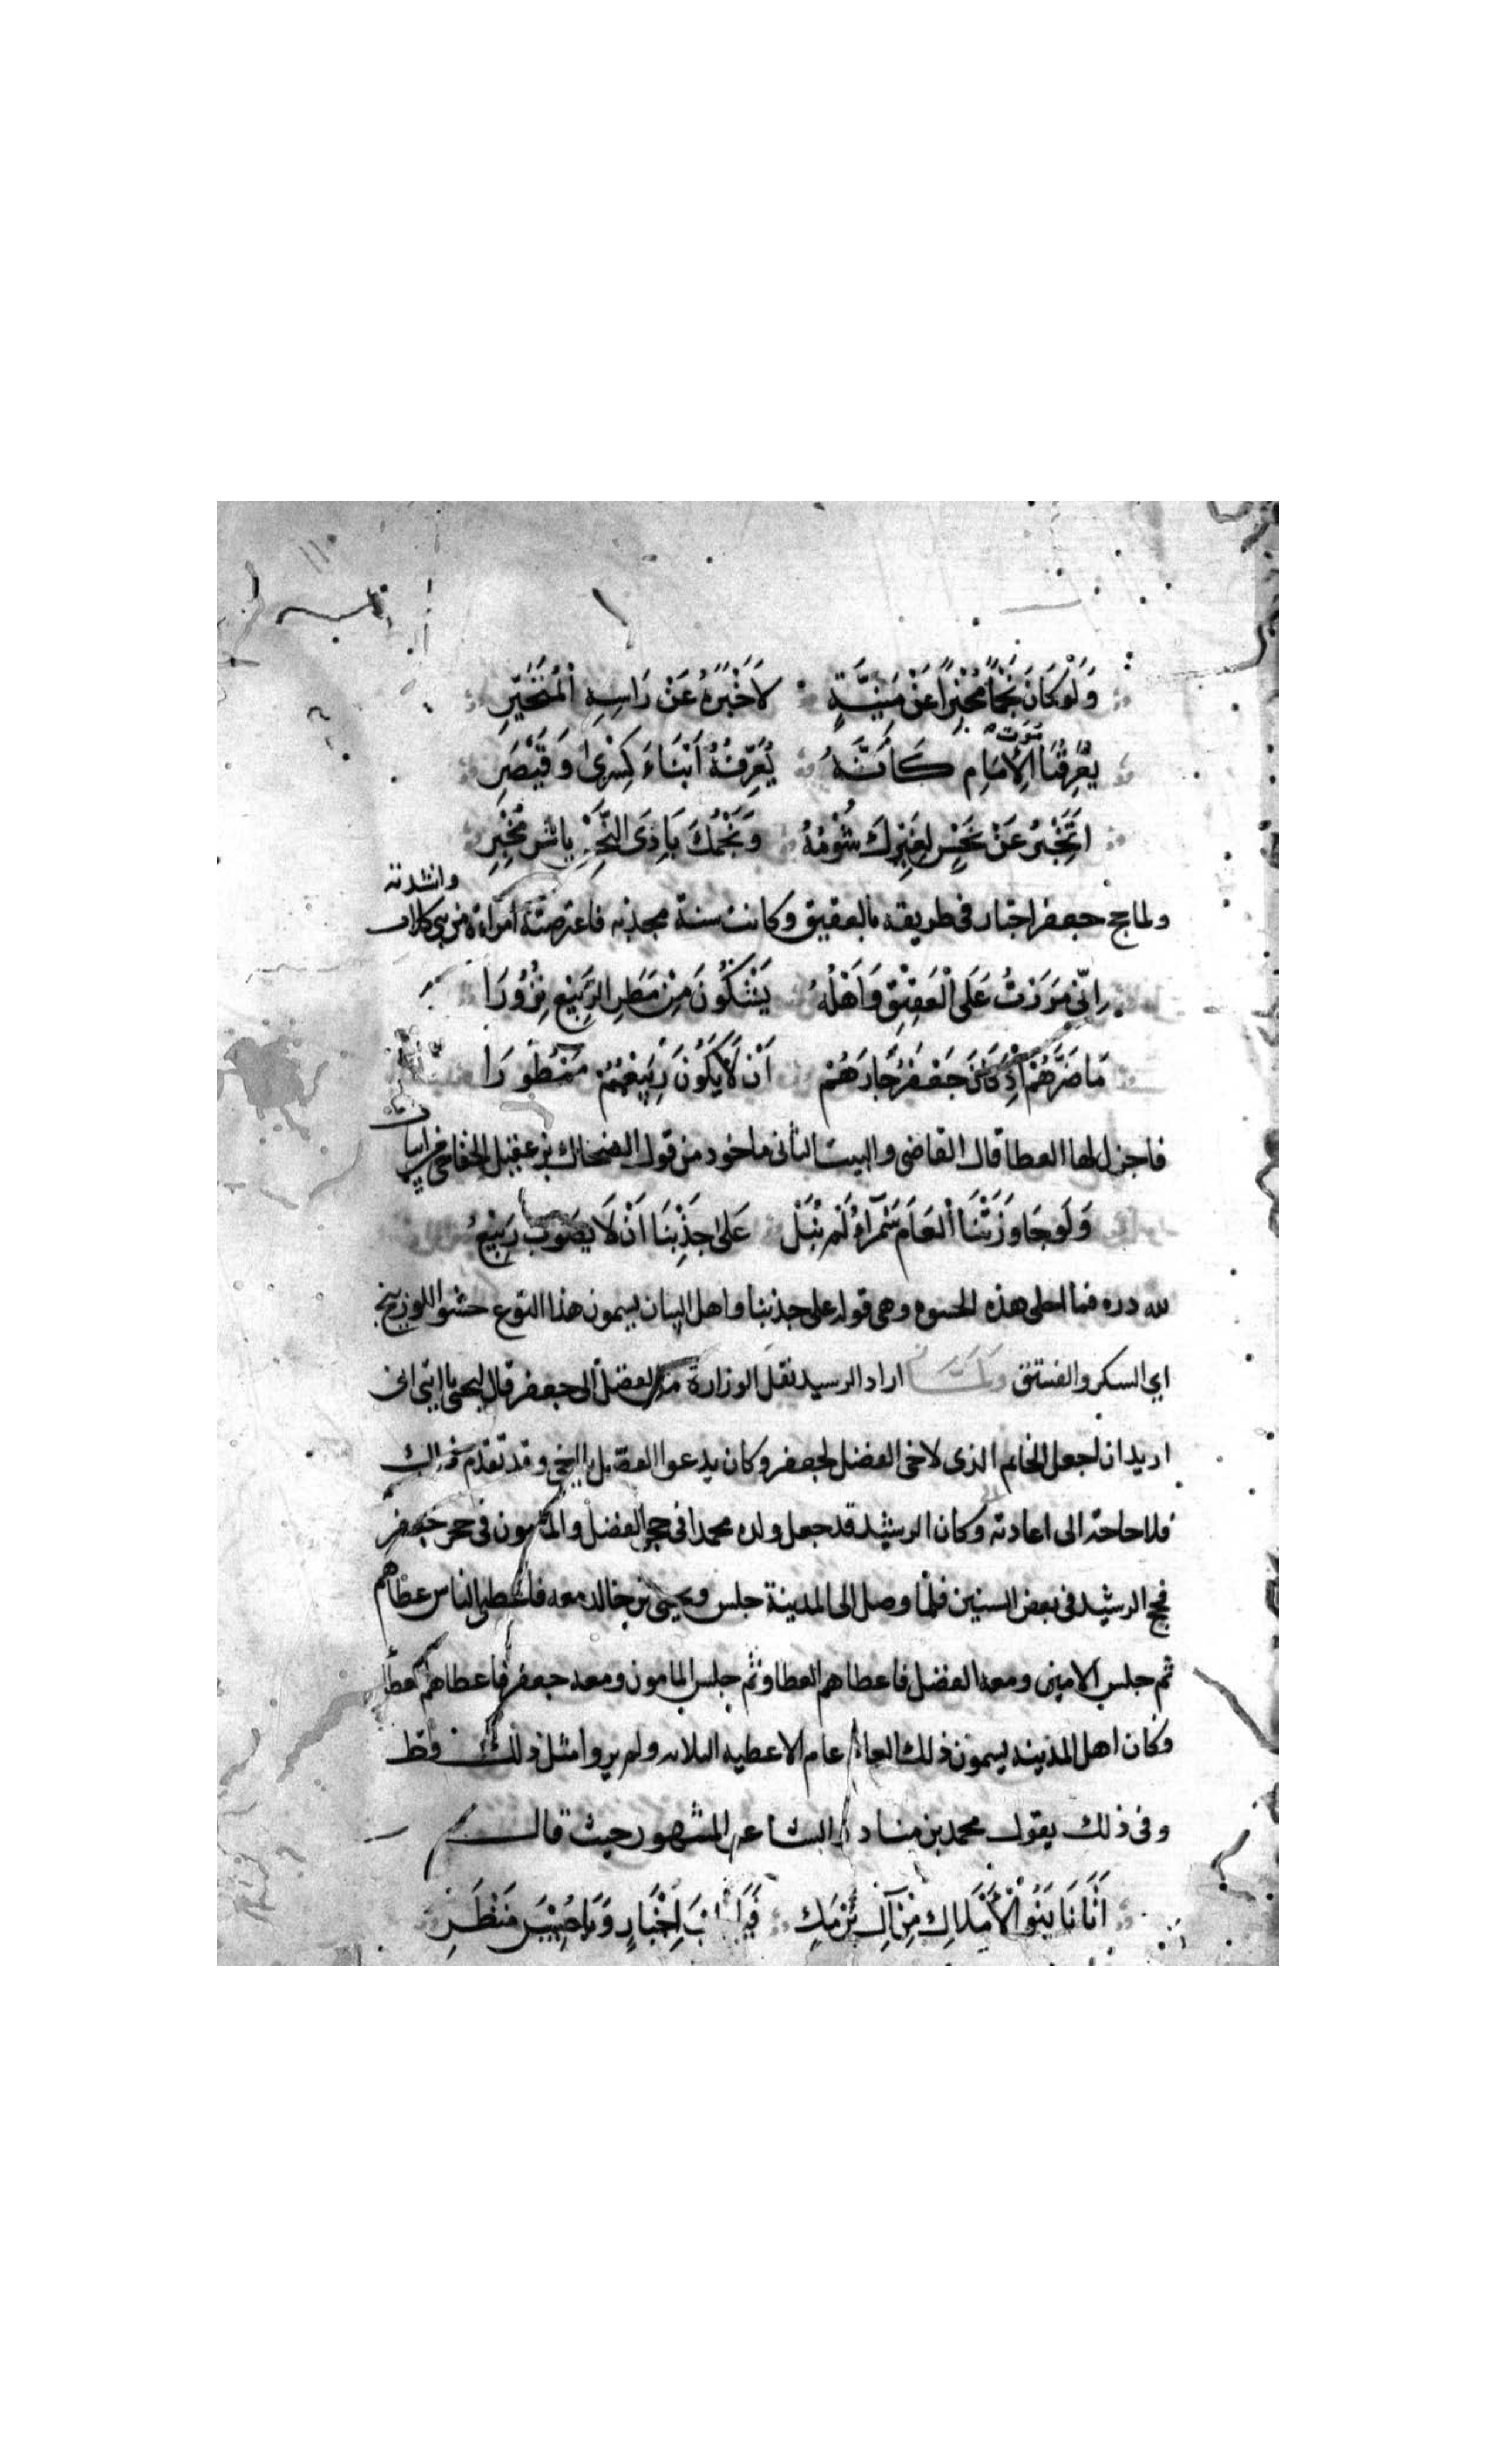 وَلَوْ كَانَ نَجْمًا مُخْبِرًا عَنْ مَنِيَّةٍ لَاَخْبَرَهُ عَنْ رَاسِهِ الْمُتَخَيِّرِ
يُعَرِّفُنَا مَوْتَ الْاِمَامِ كَأَنَّهُ يُعَرِّفُهُ اَبْنَاءَ كِسْرَى وَقَيْصَرِ
اَتُخْبِرُ عَنْ نَحْسٍ لِغَيْرِكَ شُوْمُهُ وَنَجْمُكَ بَادِى النَّحْسِ يا شر مُخْبِرِ
ولما حج جعفر اجتاز فى طريقه بالعقيق وكانت سنة مجدبه فاعترضته امراة من بنى كلاب وانشدته
اِنِّى مَرَرْتُ عَلَى الْعَقِيْقِ وَاَهْلُهُ يَشْكُوْنَ مِنْ مَطَرِ الرَّبِيْعِ نُزُوْرَا
مَا ضَرَّهُمْ اِذْ كَانَ جَعْفَرُ جَارَهُمْ اَنْ لَا يَكُوْنَ رَبِيْعُهُمْ مَمْطُوْرَا
فاجزل لها العطا قال القاضى والبيت الثانى ماخوذ من قول الضحاك بن عقيل الخفاجى من ابيات
وَلَو جَاوَزَتْنَا الْعَامَ سَمْرَاءُ لَمْ نُبَلْ عَلَى جَدْبِنَا اَنْ لَا يَصَوْبَ رَبِيْعُ
لله دره فما احلى هذه الحشوه وهى قوله على جدبنا واهل البيان يسمون هذا النوع حشو اللوزينج
اى السكر والفستق وَلَمَّا اراد الرسيد نقل الوزارة من الفضل الى جعفر قال ليحيى يا ابتى انى
اريد ان اجعل الخاتم الذى لاخى الفضل لجعفر وكان يدعوا الفضل يا اخى وقد تقدم ذلك
فلا حاجة الى اعادته وكان الرشيد قد جعل ولده محمدا فى حجر الفضل والمامون فى حجر جعفر
فحج الرشيد فى بعض السنين فلما وصل الى المدينة جلس ويحيى بن خالد معه فاعطى الناس عطاهم
ثم جلس الامين ومعه الفضل فاعطاهم العطا وثم جلس المامون ومعه جعفر فاعطاهم العطا
وكان اهل المدينه يسمون ذلك العام عام الاعطيه الثلاثه ولم يروا مثل ذلك قط
وفى ذلك يقول محمد بن مناذر الشاعر المشهور حيث قال
أَتَانَا بَنُو الْأَمْلَاكِ مِنْ آلِ بَرْمَكٍ فَيَا طِيْبَ اَخْبَارٍ وَيَا حُسْنَ مَنْظَرِ